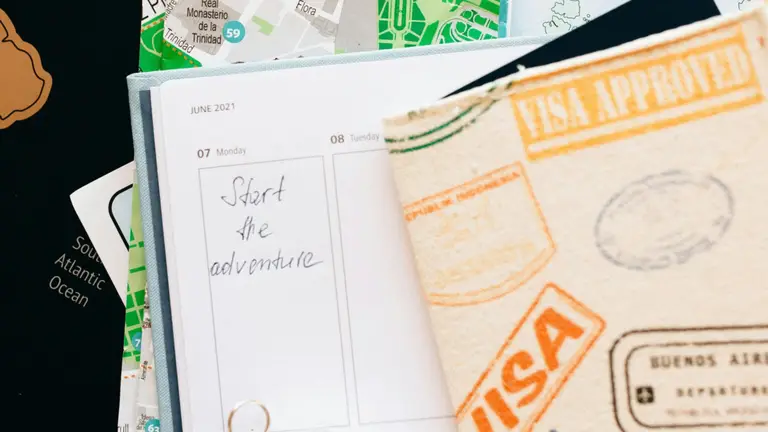 Real
Monasterio
de la
Trinidad
Trinidad
Flora
59
JUNE 2021
07 Monday
08 Tuesday
Start
the
adventure
South
Atlantic
Ocean
63
VISA APPROVED
REPUBLIK INDONESIA
VISA
BUENOS AIRE
DEPARTURE